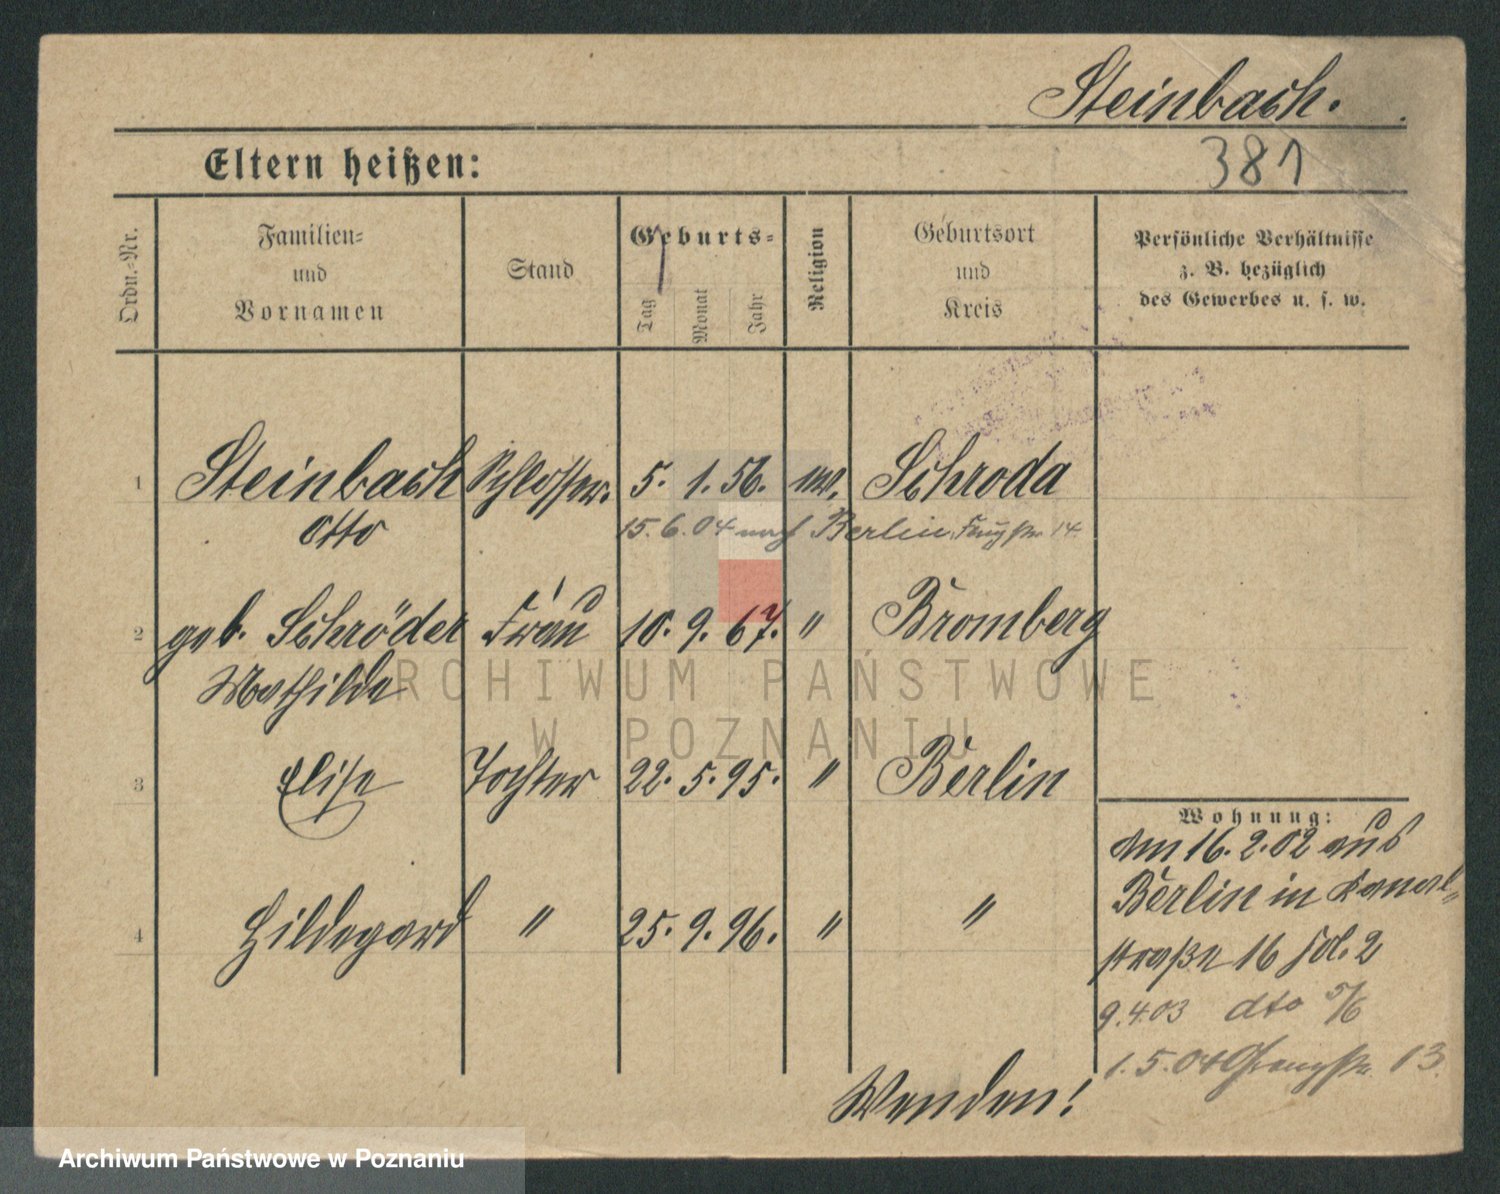 Steinbach.
381
Eltern heißen:
Ordn.-Nr.
Familien-
und
Vornamen
Stand
Geburts-
Tag
Monat
Jahr
Religion
Geburtsort
und
Kreis
Persönliche Verhältnisse
z. B. bezüglich
des Gewerbes u. s. w.
1 Steinbach Schlosser. 5. 1. 56. Schroda
Otto
15. 6. 04 nach Berlin, 14
2 geb. Schröder Frau 10. 9. 67. " Bromberg
Mathilde
3 Elise Tochter 22. 5. 95. " Berlin
4 Hildegard " 25. 9. 96. " "
Wohnung:
Am 16. 2. 02 aus
Berlin in Kanal-
straße 16 bei. 2
9.4.03 dto 5/6
1. 5. 04 13
Wenden!
ARCHIWUM PAŃSTWOWE
W POZNANIU
Archiwum Państwowe w Poznaniu